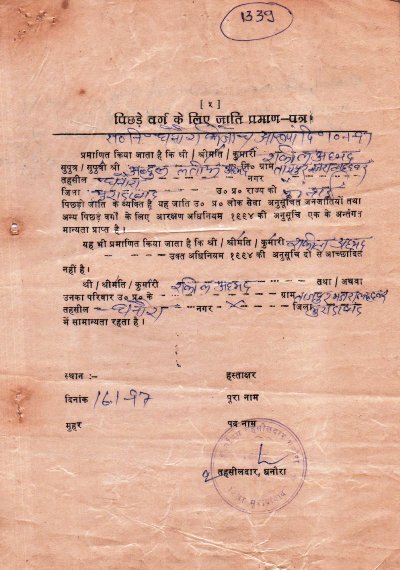 1339
[ ५ ]
पिछड़े वर्ग के लिए जाति प्रमाण-पत्र
प्रमाणित किया जाता है कि श्री / श्रीमति / कुमारी शकील अहमद
सुपुत्र / सुपुत्री श्री अब्दुल लतीफ अहमद ग्राम
तहसील धनौरा नगर
जिला मुरादाबाद उ० प्र० राज्य की
पिछड़ी जाति के व्यक्ति हैं यह जाति उ० प्र० लोक सेवा अनुसूचित जनजातियों तथा
अन्य पिछड़े वर्गों के लिए आरक्षण अधिनियम १९९४ की अनुसूचि एक के अन्तंगत
मान्यता प्राप्त है ।
यह भी प्रमाणित किया जाता है कि श्री / श्रीमती / कुमारी शकील अहमद
उक्त अधिनियम १९९४ की अनुसूचि दो से आच्छादित
नहीं है ।
श्री / श्रीमति / कुमारी शकील अहमद तथा / अथवा
उनका परिवार उ० प्र० के ग्राम
तहसील धनौरा नगर × जिला मुरादाबाद
में सामान्यता रहता है ।
स्थान :- हस्ताक्षर
दिनांक 16.1.97 पूरा नाम
मुहर पद नाम
तहसीलदार, धनौरा